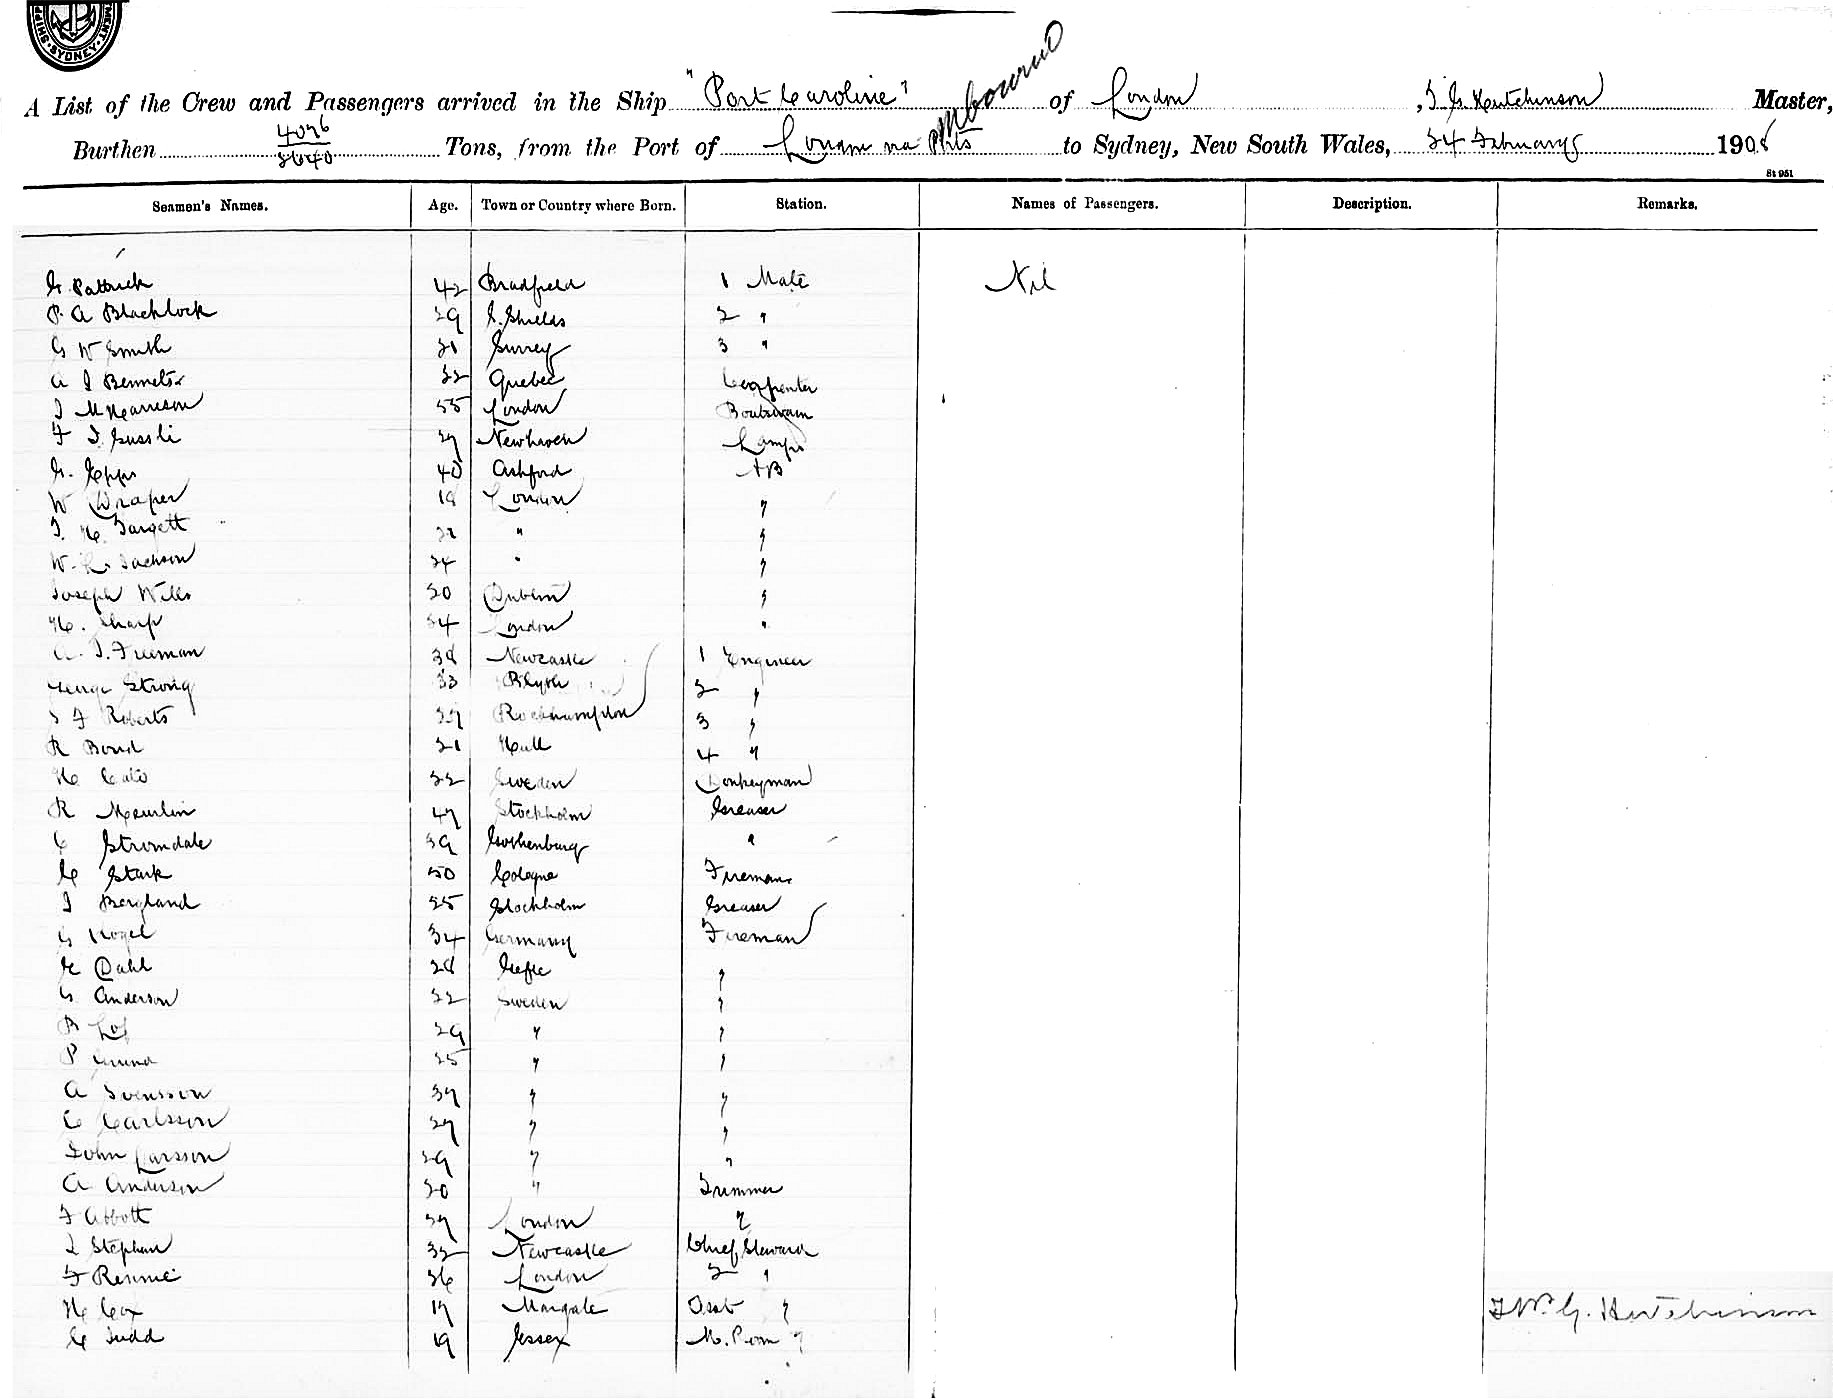 SHIPP · SYDNEY · MENT
A List of the Crew and Passengers arrived in the Ship "Port Caroline" of London, Hutchinson Master,
Burthen 4076 Tons, from the Port of London via Melbourne to Sydney, New South Wales, 24 February 1908
St 951
Seamen's Names. Age. Town or Country where Born. Station. Names of Passengers. Description. Remarks.
G. Pattrick 42 Bradfield 1 Mate Nil
P. A Blacklock 29 S. Shields 2 "
G W Smith 21 Surrey 3 "
A J Bennets 22 Quebec Carpenter
J M Harrison 55 London Boatswain
F J 27 Newhaven Lamps
G. Epps 40 Ashford AB
W Draper 18 London "
J. H. Targett 22 " "
W. Jackson 24 " "
Joseph Wills 20 Dublin "
H. Sharp 24 London "
A. J. Freeman 38 Newcastle 1 Engineer
George Strong 33 Blyth 2 "
F Roberts 27 Rockhampton 3 "
R Bond 21 Hull 4 "
H 22 Sweden Donkeyman
R 47 Stockholm Greaser
C Stromdale 39 Gothenburg "
C Stark 50 Cologne Fireman
J Bergland 25 Stockholm Greaser
G 34 Germany Fireman
E Dahl 28 Gefle "
G Anderson 22 Sweden "
B Lof 29 " "
P 25 " "
A Svensson 37 " "
C Carlsson 27 " "
John Larsson 29 " "
A Anderson 20 " Trimmer
F Abbott 27 London "
Stephen 32 Newcastle Chief Steward
F Rennie 26 London 2 "
H Cox 17 Margate Asst "
C Judd 19 Essex M. Room "
G. Hutchinson